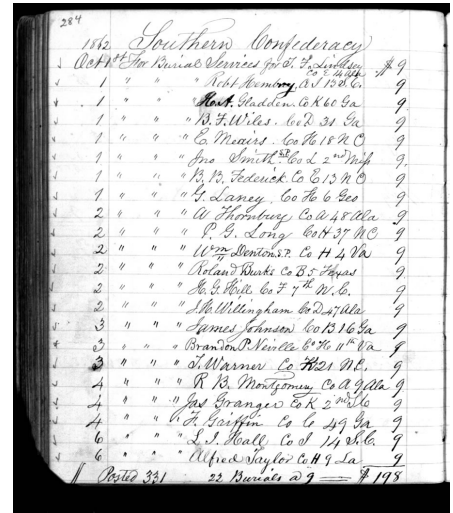 284
1862 Southern Confederacy
Oct 1st For Burial Services for T. F. Lindsey Co E 14 Ala $ 9
1 " " " Robt Hembry, A I 13 S.C. 9
1 " " " Gladden Co K 60 Ga 9
1 " " " B. F. Wiles. Co D 31 Ga 9
1 " " " E. Meairs. Co H 18 N C 9
1 " " " Jno Smith Co L 2nd Miss 9
1 " " " B. B. Federick Co E 13 N C 9
1 " " " G. Laney Co H 6 Geo 9
2 " " " A Thornbury Co A 48 Ala 9
2 " " " P. G. Long Co H 37 N C 9
2 " " " Wm Denton S.P. Co H 4 Va 9
2 " " " Roland Burks Co B 5 Texas 9
2 " " " H. G. Hill Co F 7th N.C. 9
2 " " " J. H. Willingham Co D 47 Ala 9
3 " " " James Johnson Co B 16 Ga 9
3 " " " Brandon P. Neville Co H 11th Va 9
3 " " " T. Warner Co K 21 N.C. 9
4 " " " R B. Montgomery Co A 9 Ala 9
4 " " " Jas Granger Co K 2nd 9
4 " " " F. Griffin Co C 49 Ga 9
6 " " " L. I. Hall Co I 14 S.C. 9
6 " " " Alfred Taylor Co H 9 La 9
Posted 331 22 Burials a 9 $ 198